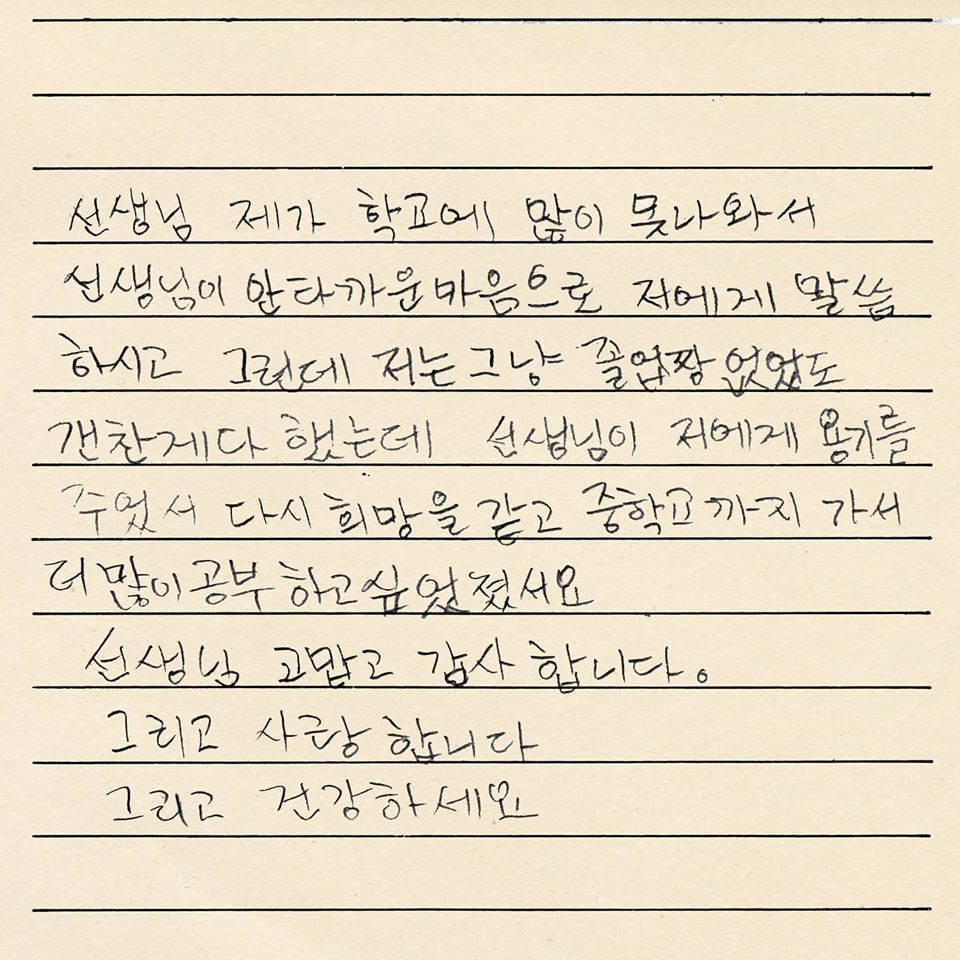 선생님 제가 학교에 많이 못나와서
선생님이 안타까운마음으로 저에게 말씀
하시고 그런데 저는그냥 졸업짱 없었도
갠찬게다 했는데 선생님이 저에게 용기를
주었서 다시 희망을 같고 중학교까지 가서
더많이공부하고싶었졌서요
선생님 고맙고 감사합니다.
그리고 사랑합니다
그리고 건강하세요